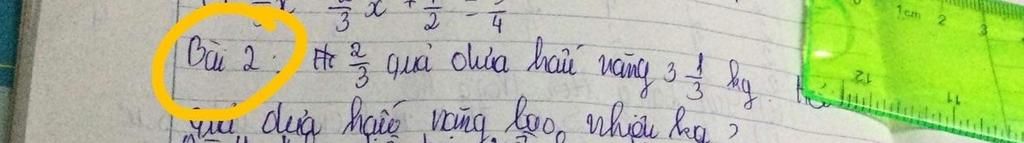 2/3 x + 1/2 = 5/4
Bài 2: 2/3 quả dưa hấu nặng 3 1/3 kg. Hỏi
quả dưa hấu nặng bao nhiêu kg?
1cm 2 3
12 11